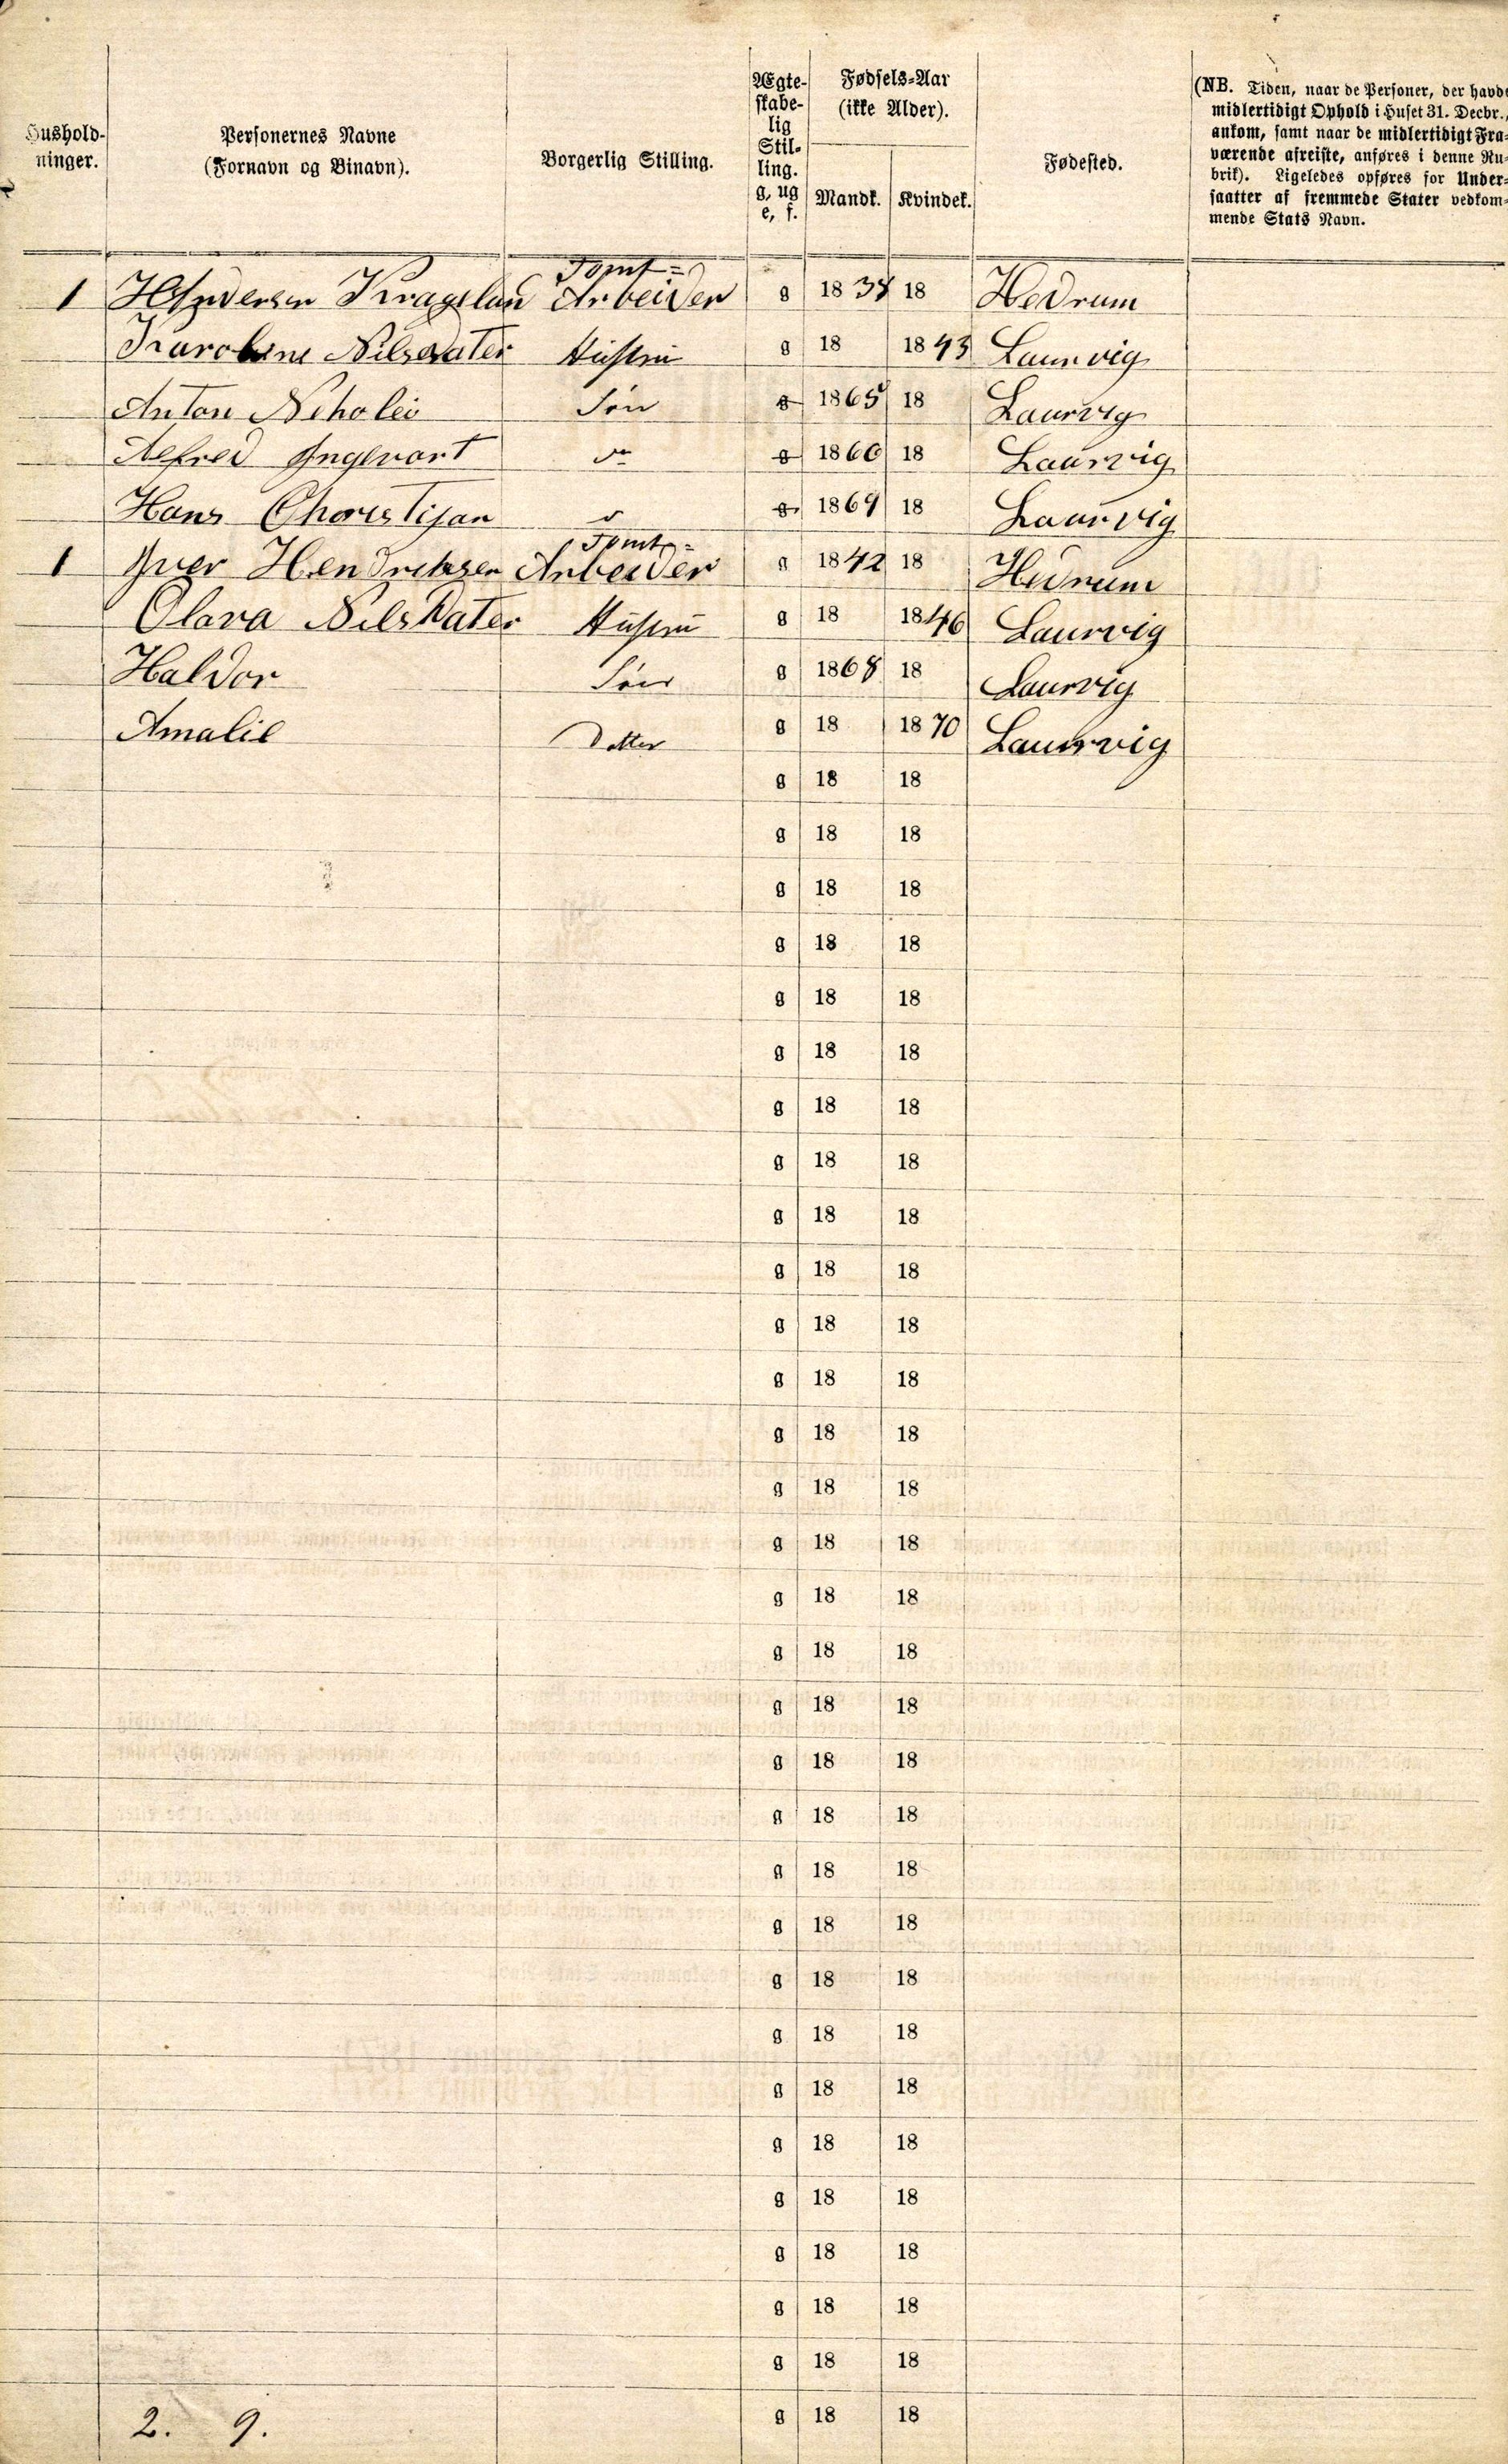 Hushold-
ninger.
Personernes Navne
(Fornavn og Binavn).
Borgerlig Stilling.
Ægte-
skabe-
lig
Stil-
ling.
g, ug
e, f.
Fødsels-Aar
(ikke Alder).
Mandk.
Kvindek.
Fødested.
(NB. Tiden, naar de Personer, der havde
midlertidigt Ophold i Huset 31. Decbr.,
ankom, samt naar de midlertidigt Fra-
værende afreiste, anføres i denne Ru-
brik). Ligeledes opføres for Under-
saatter af fremmede Stater vedkom-
mende Stats Navn.
Tomt=
1 Kragelun Arbeider g 1838 18 Hedrum
Karoline Nilsdater Hustru g 18 1843 Laurvig
Anton Nikolei Søn g 1865 18 Laurvig
Alfred Ingevart do g 1866 18 Laurvig
Hans Choristijan d g 1869 18 Laurvig
Tomt=
1 Iver Hendriksen Arbeider g 1842 18 Hedrum
Olava Nilsdater Hustru g 18 1846 Laurvig
Haldor Søn g 1868 18 Laurvig
Amalie Datter g 18 1870 Laurvig
g 18 18
g 18 18
g 18 18
g 18 18
g 18 18
g 18 18
g 18 18
g 18 18
g 18 18
g 18 18
g 18 18
g 18 18
g 18 18
g 18 18
g 18 18
g 18 18
g 18 18
g 18 18
g 18 18
g 18 18
g 18 18
g 18 18
g 18 18
g 18 18
g 18 18
g 18 18
g 18 18
g 18 18
g 18 18
g 18 18
2. 9. g 18 18